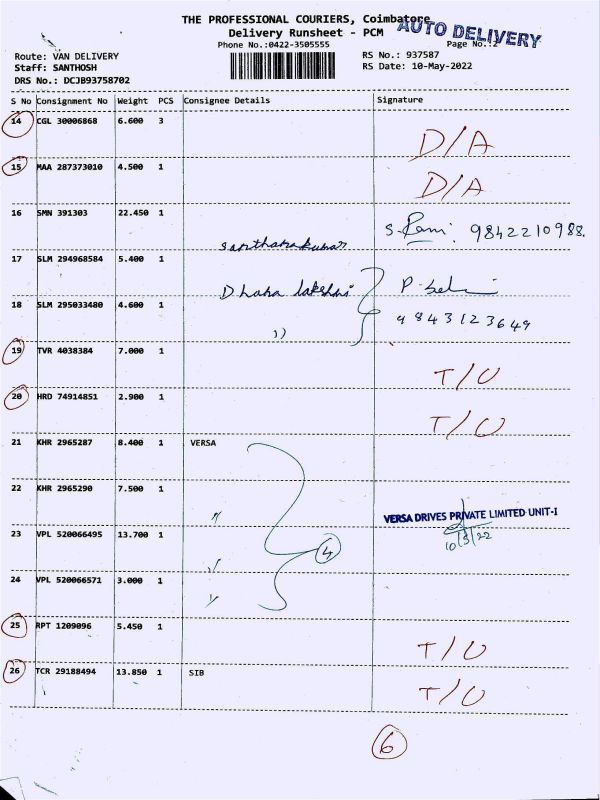 THE PROFESSIONAL COURIERS, Coimbatore
AUTO DELIVERY
Delivery Runsheet - PCM
Phone No.:0422-3505555
Page No.:2
Route: VAN DELIVERY
RS No.: 937587
Staff: SANTHOSH
RS Date: 10-May-2022
DRS No.: DCJB93758702
S No Consignment No Weight PCS Consignee Details Signature
14 CGL 30006868 6.600 3
D/A
15 MAA 287373010 4.500 1
D/A
16 SMN 391303 22.450 1
S. Rani 9842210988.
santhanakumar
17 SLM 294968584 5.400 1
Dhana lakshmi
9843123649
18 SLM 295033480 4.600 1
))
19 TVR 4038384 7.000 1
T/U
20 HRD 74914851 2.900 1
T/U
21 KHR 2965287 8.400 1 VERSA
22 KHR 2965290 7.500 1
VERSA DRIVES PRIVATE LIMITED UNIT-I
23 VPL 520066495 13.700 1
10/5/22
4
24 VPL 520066571 3.000 1
25 RPT 1209096 5.450 1
T/U
26 TCR 29188494 13.850 1 SIB
T/U
6